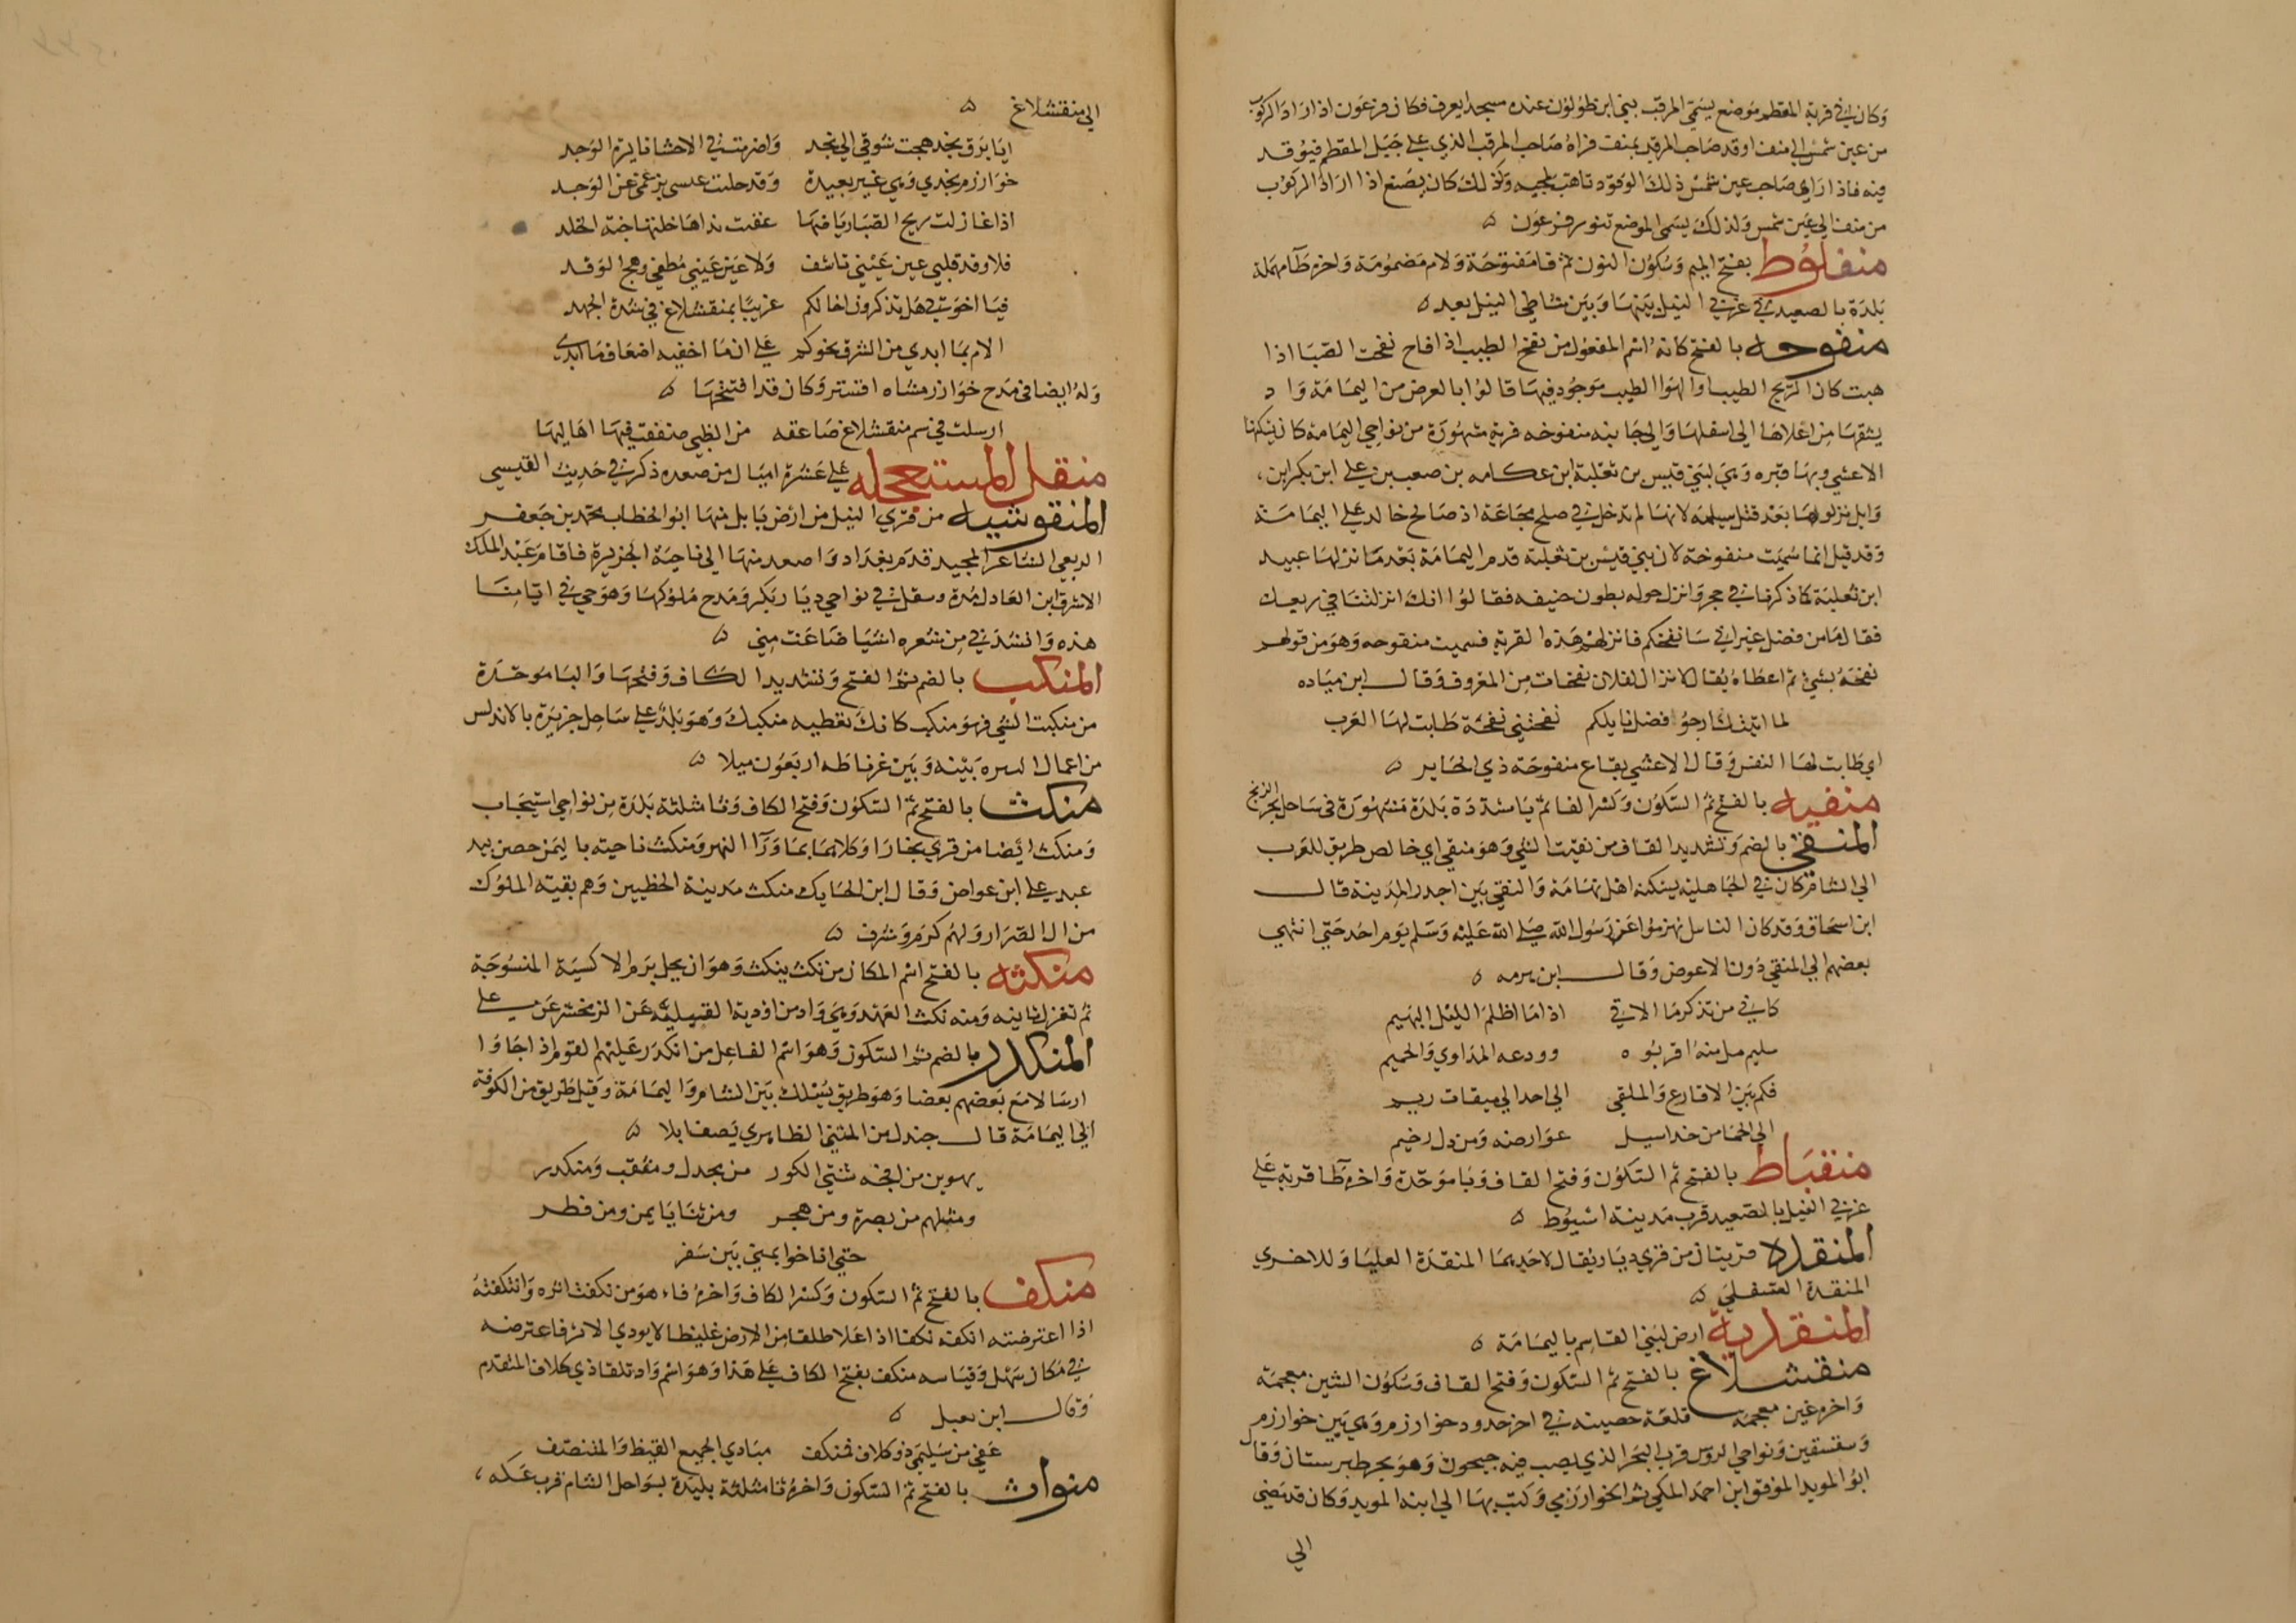 وكان في قرية المقطم موضع يسمى المرقب بني ابن طولون عنده مسجد ايعرف فكان فرعون اذا اراد الركوب
من عين شمس الي منف اوقد صاحب المرقب بمنف فراه صاحب المرقب الذي علي جبل المقطم فيوقد
فيه فاذا راي صاحب عين شمس ذلك الوقود تاهب لمجيه وكذلك كان يصنع اذا اراد الركوب
من منف الي عين شمس ولذلك يسمى الموضع تنور فرعون ٥
منفلوط بفتح الميم وسكون النون ثم فا مفتوحة ولام مضمومة واخره طا مهملة
بلدة بالصعيد في غربي النيل بينها وبين شاطي النيل بعد ٥
منفوحه بالفتح كانه اسم المفعول من نفح الطيب اذا فاح نفحت الصبا اذا
هبت كان الريح الطيب او الهوا الطيب موجود فيها قالوا بالعرض من اليمامة واد
يشقها من اعلاها الي اسفلها والي جانبه منفوحه قرية مشهورة من نواحي اليمامة كان يسكنها
الاعشي وبها قبره وهي لبني قيس بن ثعلبة ابن عكابه بن صعب بن علي ابن بكر ابن
وايل نزلوها بعد قتل مسيلمة لانها لم تدخل في صلح مجاعة اذ صالح خالد علي اليمامة
وقد قيل انما سميت منفوحة لان بني قيس بن ثعلبة قدم اليمامة بعد ما نزلها عبيد
ابن ثعلبة كما ذكرنا في حجر وانزل حوله بطون حنيفه فقالوا انك انزلتنا في ربعك
فقال ما من فضل غير اني سانفحكم فانزلهم هذه القرية فسميت منفوحه وهو من قولهم
نفحه بشي ثم اعطاه يقال لا تزال لفلان نفحات من المعروف وقال ابن مياده
لما اتيتك ارجو فضل نايلكم نفحتني نفحة طابت لها العرب
اي طابت لها النفس وقال الاعشي بقاع منفوحة ذي الحاير ٥
منفيه بالفتح ثم السكون وكسر الفا ثم يا مشددة بلدة مشهورة في ساحل بحر الزنج
المنقي بالضم وتشديد القاف من نقيت الشي وهو منقي اي خالص طريق للعرب
الي الشام كان في الجاهلية يسكنه اهل تهامة والنقي بين احد والمدينة قال
ابن اسحاق وقد كان الناس نهزموا عن رسول الله صلي الله عليه وسلم يوم احد حتي انتهي
بعضهم الي المنقي دون الاعوض وقال ابن هرمه ٥
كاني من تذكر ما الاقي اذا ما اظلم الليل البهيم
سليم مل منه اقربوه وودعه المداوي والحميم
فكم بين الاقارع والملقي الي احد الي ميقات ريم
الي الجما من خد اسيل عوارضه ومن دل رخيم
منقباط بالفتح ثم السكون وفتح القاف وبا موحدة واخره طا قرية علي
غربي النيل بالصعيد قرب مدينة اسيوط ٥
المنقدة قريتان من قري ديار يقال لاحديهما المنقدة العليا وللاخري
المنقدة السفلي ٥
المنقدية ارض لبني القاسم باليمامة ٥
منقشلاغ بالفتح ثم السكون وفتح القاف وسكون الشين معجمة
واخره غين معجمة قلعة حصينه في اخر حدود خوارزم وهي بين خوارزم
وسقسقين ونواحي الروس قرب البحر الذي يصب فيه جيحون وهو بحر طبرستان وقال
ابو المويد الموفق ابن احمد المكي ثم الخوارزمي وكتب بها الي ابنه المويد وكان قد مضي
الي
الي منقشلاغ ٥
ايا برق نجد هجت شوقي الي نجد واضرمت في الاحشا نايرة الوجد
خوارزم نجدي وهي غير بعيدة وقد حلت عيسي بزعمي عن الوجد
اذا غازلت ريح الصبا رياضها عفت نداها خلتها جنة الخلد
فلا وقد قلبي عين عيني تاشف ولا عين عيني مطفي وهج الوقد
فيا اخوتي هل تذكرون اخا لكم غريبا بمنقشلاغ في شدة الجهد
الام بما ابدي من الشوق نحوكم علي ان ما اخفيه اضعاف ما ابدي
وله ايضا في مدح خوارزمشاه اقسنر وكان قد افتتحها ٥
ارسلت في سم منقشلاغ صاعقه من الظبي صنفقت فيها اهاليها
منقل المستعجله علي عشرة اميال من صعده ذكر في حديث القيسي
المنقوشيه من قري النيل من ارض بابل منها ابو الخطاب محمد بن جعفر
الربعي الشاعر المجيد قدم بغداد واصعد منها الي ناحية الجزيرة فاقام عند الملك
الاشرف ابن العادل مدة وسقل في نواحي ديار بكر ومدح ملوكها وهو حي في ايامنا
هذه وانشدني من شعره اشيا ضاعت مني ٥
المنكب بالضم ثم الفتح وتشديد الكاف وفتحها والبا موحدة
من منكبت الشي فهو منكب كانك تعطيه منكبك وهو بلد علي ساحل جزيرة بالاندلس
من اعمال البيره بينه وبين غرناطه اربعون ميلا ٥
منكث بالفتح ثم السكون وفتح الكاف وثا مثلثة بلدة من نواحي اسبيجاب
ومنكث ايضا من قري بخارا وكلاهما بما ورا النهر ومنكث ناحيته باليمن حصن بيد
عبد علي ابن عواض وقال ابن الحايك منكث مدينة الخطيين وهم بقية الملوك
من ال الصرار ولهم كرم وشرف ٥
منكثه بالفتح اسم المكان من نكث ينكث وهو ان يحل برم الاكسية المنسوجة
ثم تغزل ثانيه ومنه نكث العهد وهي واد من اودية القبلية عن الزمخشري عن علي
المنكدر بالضم ثم السكون وهو اسم الفاعل من انكدر عليهم القوم اذا جاوا
ارسالا تبع بعضهم بعضا وهو طريق يسلك بين الشام واليمامة وقيل طريق من الكوفة
الي اليمامة قال جندل بن المثني الطاهري يصف ابلا ٥
يهوين من افجة شتي الكور من مجدل ومثقب ومنكدر
ومثلهم من بصرة ومن هجر ومن ثنايا يمن ومن قطر
حتي اناخوا بمني بين سفر
منكف بالفتح ثم السكون وكسر الكاف واخره فاء هو من نكفت اثره وانتكفته
اذا اعترضته انكفه نكفا اذا علا طلقا من الارض غليظا لا يودي الاثر فاعترضه
في مكان سهل وقياسه منكف بفتح الكاف علي هذا وهو اسم واد تلقا ذي كلاف المتقدم
وقال ابن مقبل ٥
عفي من سليمي ذو كلاف فمنكف مبادي الجميع القيظ والمتصيف
منواث بالفتح ثم السكون واخره ثا مثلثة بليدة بسواحل الشام قرب عكه